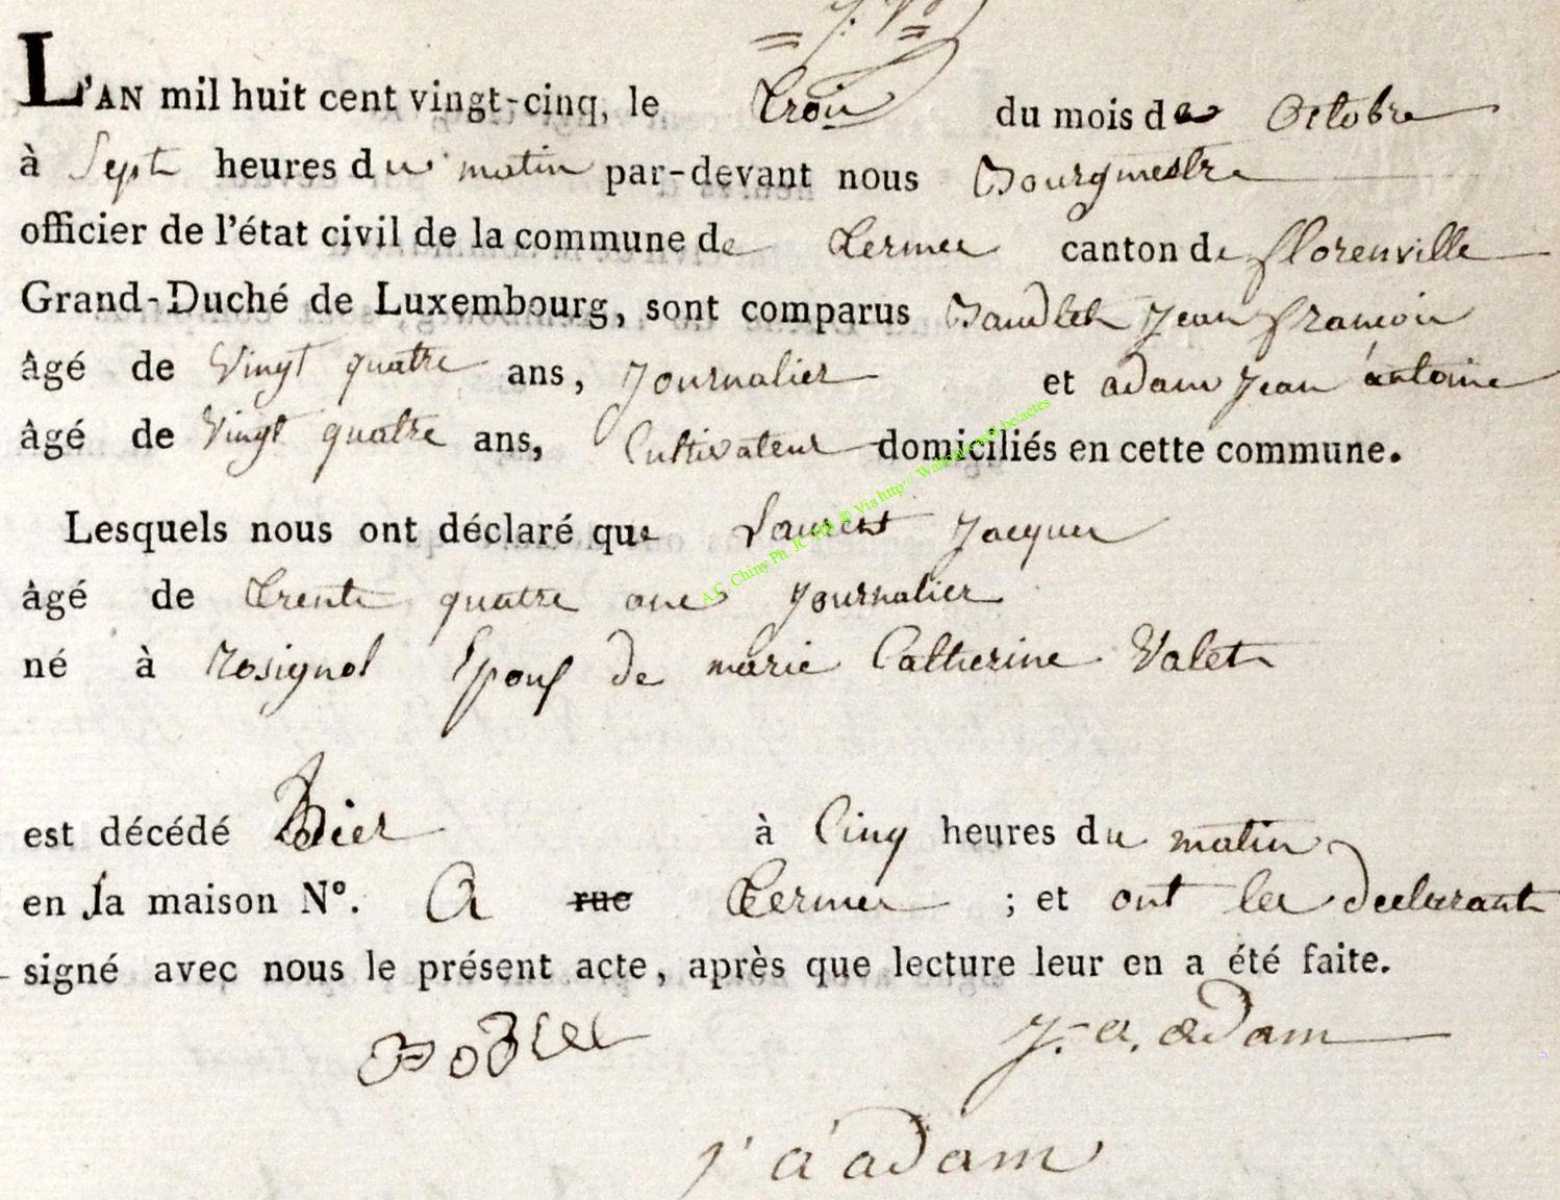 L'AN mil huit cent vingt-cinq, le Trois du mois de Octobre
à Sept heures du matin par-devant nous Bourgmestre
officier de l'état civil de la commune de Termes canton de florenville
Grand-Duché de Luxembourg, sont comparus Baudlet Jean françois
âgé de Vingt quatre ans, Journalier et adam Jean antoine
âgé de Vingt quatre ans, Cultivateur domiciliés en cette commune.
Lesquels nous ont déclaré que Laurent Jacques
âgé de Trente quatre ans Journalier
né à Rosignol Epoux de marie Catherine Valet
est décédé hier à Cinq heures du matin
en sa maison N°. A rue Termes ; et ont les declarant
signé avec nous le présent acte, après que lecture leur en a été faite.
J. a. adam
j a adam